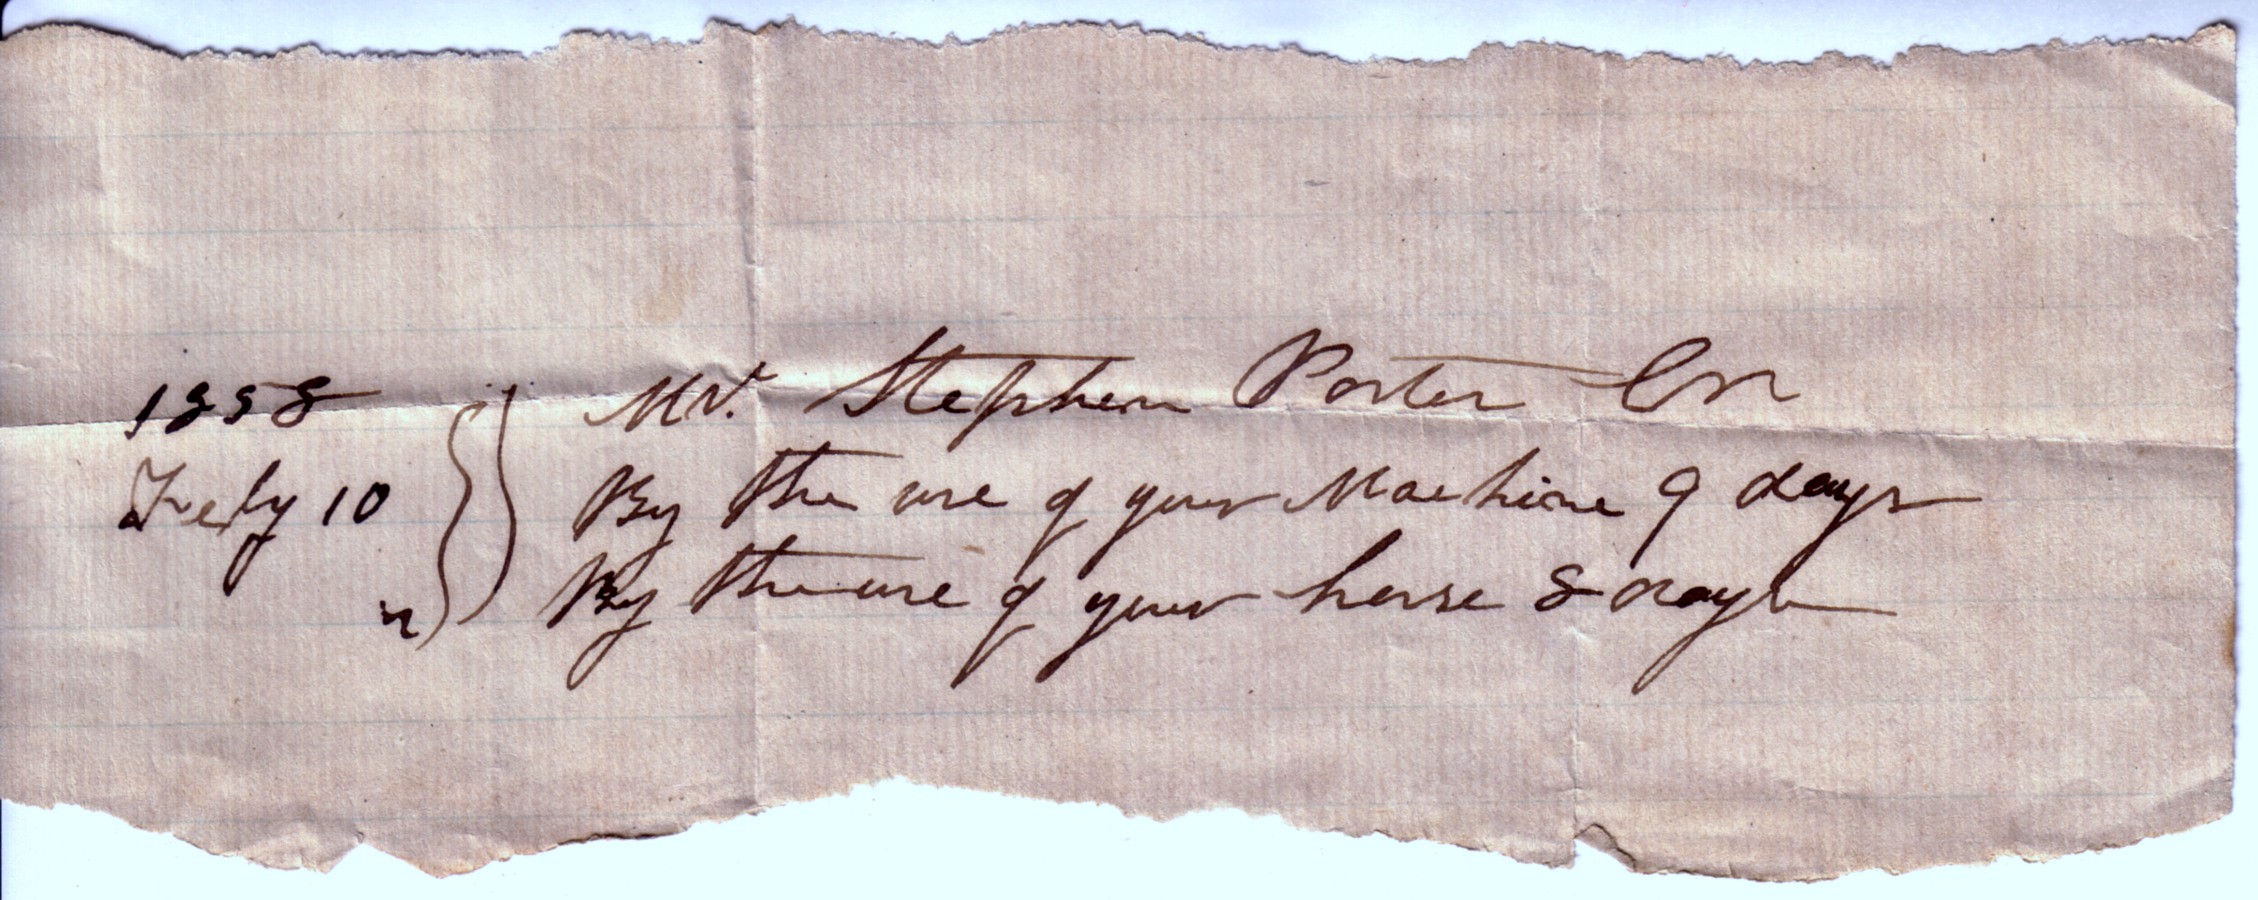 1858
July 10
"
Mr. Stephen Porter Cr
By the use of your Machine 9 days
By the use of your horse 8 days